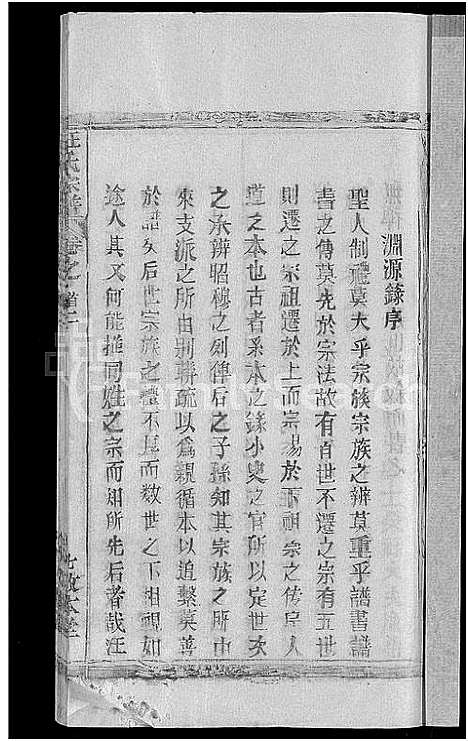 淵源錄序
聖人制禮莫大乎宗族宗族之辨莫重乎譜書譜
書之傳莫先於宗法故有百世不遷之宗有五世
則遷之宗祖遷於上而宗易於下祖宗之傳皇人
道之本也古者系本之錄小史之官所以定世次
之承辨昭穆之列俾后之子孫知其宗族之所由
來支派之所由别聯疏以為親循本以追繫莫善
於譜矣后世宗族之禮不見而数世之下相視如
途人其又何能推同姓之宗而知所先后者哉汪
汪氏宗譜
卷之首二
七教本堂